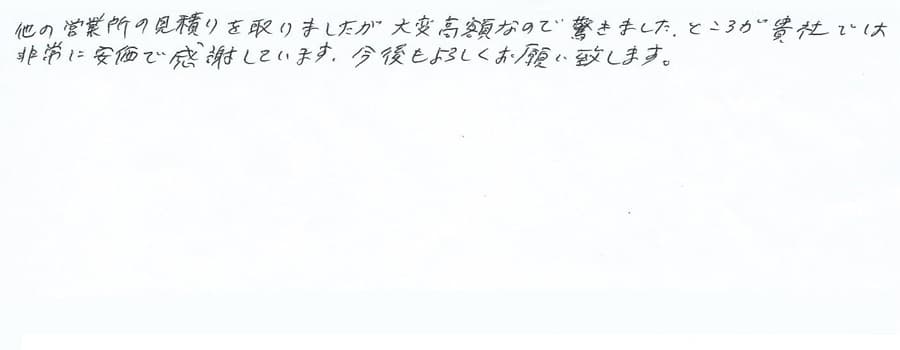 他の営業所の見積りを取りましたが大変高額なので驚きました.ところが貴社では
非常に安価で感謝しています.今後もよろしくお願い致します。